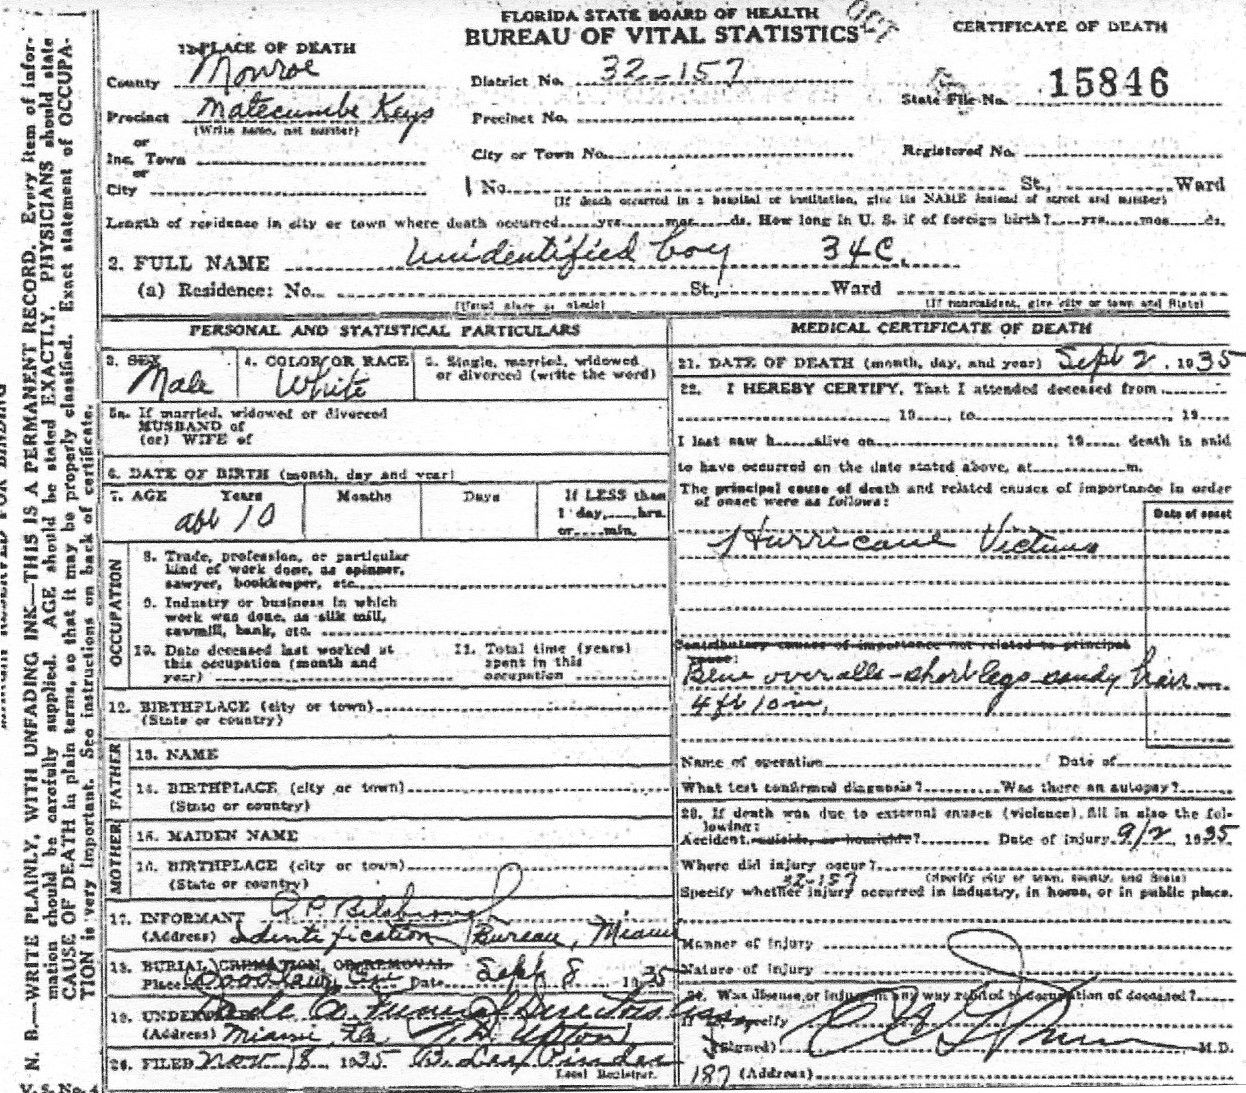 FLORIDA STATE BOARD OF HEALTH
BUREAU OF VITAL STATISTICS
CERTIFICATE OF DEATH
OCT
1. PLACE OF DEATH
County Monroe
District No. 32-157
State File No. 15846
Precinct Matecumbe Keys
(Write name, not number)
Precinct No.
or
Inc. Town
City or Town No.
Registered No.
or
City
No. St., Ward
(If death occurred in a hospital or institution, give its NAME instead of street and number)
Length of residence in city or town where death occurred yrs. mos. ds. How long in U. S. if of foreign birth? yrs. mos. ds.
2. FULL NAME Unidentified boy 34C.
(a) Residence: No. St., Ward
(Usual place of abode) (If nonresident, give city or town and State)
PERSONAL AND STATISTICAL PARTICULARS
3. SEX Male
4. COLOR OR RACE White
5. Single, married, widowed
or divorced (write the word)
5a. If married, widowed or divorced
HUSBAND of
(or) WIFE of
6. DATE OF BIRTH (month, day and year)
7. AGE Years Months Days If LESS than
1 day, hrs.
or min.
abt 10
OCCUPATION
8. Trade, profession, or particular
kind of work done, as spinner,
sawyer, bookkeeper, etc.
9. Industry or business in which
work was done, as silk mill,
sawmill, bank, etc.
10. Date deceased last worked at
this occupation (month and
year)
11. Total time (years)
spent in this
occupation
12. BIRTHPLACE (city or town)
(State or country)
FATHER
13. NAME
14. BIRTHPLACE (city or town)
(State or country)
MOTHER
15. MAIDEN NAME
16. BIRTHPLACE (city or town)
(State or country)
17. INFORMANT
(Address) Identification Bureau, Miami
18. BURIAL, CREMATION, OR REMOVAL
Place Woodlawn Date Sept 8 1935
19. UNDERTAKER Dade Co Funeral Directors Assn
(Address) Miami, Fla
20. FILED Nov 18 1935
Local Registrar.
MEDICAL CERTIFICATE OF DEATH
21. DATE OF DEATH (month, day, and year) Sept 2, 1935
22. I HEREBY CERTIFY, That I attended deceased from
19 , to 19
I last saw h alive on , 19 death is said
to have occurred on the date stated above, at m.
The principal cause of death and related causes of importance in order
of onset were as follows:
Date of onset
Hurricane Victims
Contributory causes of importance not related to principal
cause:
Blue overalls - short legs sandy hair -
4 ft 10 in,
Name of operation Date of
What test confirmed diagnosis? Was there an autopsy?
23. If death was due to external causes (violence), fill in also the fol-
lowing:
Accident, suicide, or homicide? Date of injury 9/2 1935
Where did injury occur?
(Specify city or town, county, and State)
Specify whether injury occurred in industry, in home, or in public place.
Manner of injury
Nature of injury
24. Was disease or injury in any way related to occupation of deceased?
If so, specify
(Signed) M.D.
187 (Address)
N. B.—WRITE PLAINLY, WITH UNFADING INK—THIS IS A PERMANENT RECORD. Every item of infor-
mation should be carefully supplied. AGE should be stated EXACTLY. PHYSICIANS should state
CAUSE OF DEATH in plain terms, so that it may be properly classified. Exact statement of OCCUPA-
TION is very important. See instructions on back of certificate.
V. S. No. 4